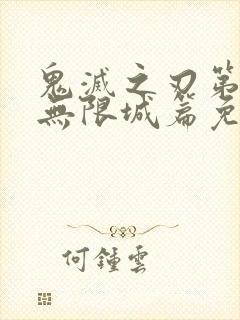 鬼滅之刃第
無限城篇免
何鍾雲